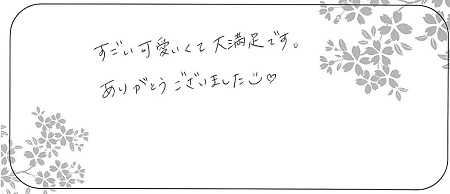 すごい可愛いくて大満足です。
ありがとうございました☺♡